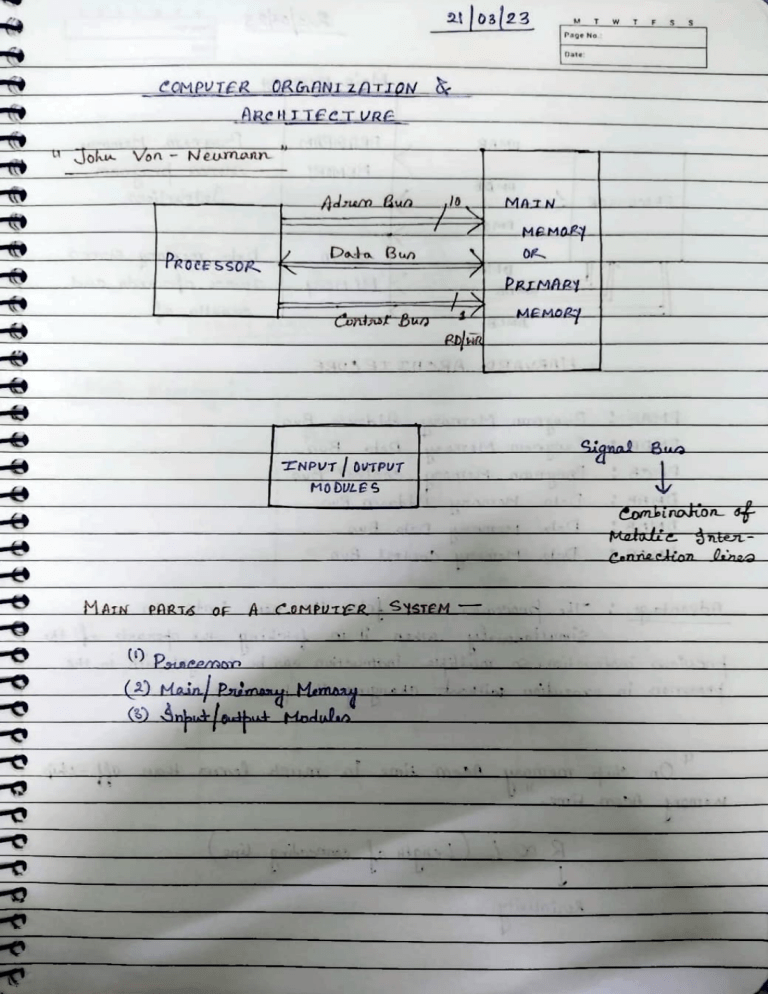 21/03/23
M T W T F S S
Page No.:
Date:
COMPUTER ORGANIZATION &
ARCHITECTURE
" John Von-Neumann "
Adress Bus
10
MAIN
MEMORY
OR
PRIMARY
MEMORY
PROCESSOR
Data Bus
Control Bus
1
RD/W̅R̅
INPUT / OUTPUT
MODULES
Signal Bus
Combination of
Metalic Inter-
connection lines
MAIN PARTS OF A COMPUTER SYSTEM —
(1) Processor
(2) Main/Primary Memory
(3) Input/output Modules